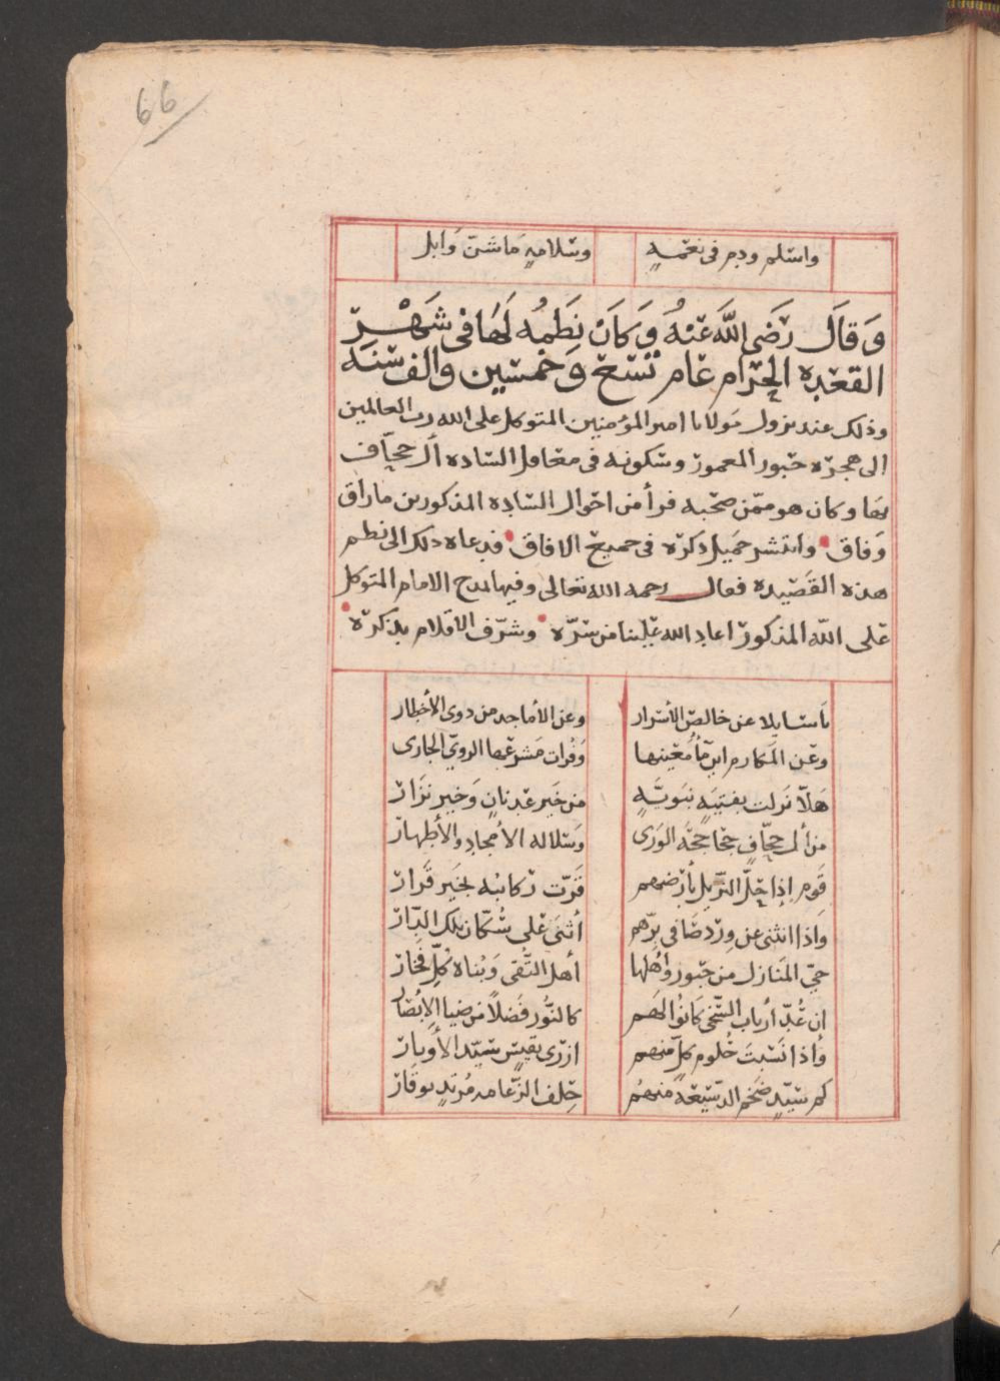 66
واسلم ودم في نعمةٍ وسلامةٍ ما شنّ وَابل
وَقالَ رَضي اللَّه عَنهُ وَكَانَ نَظمُه لَهَا في شَهْرِ
القعده الحرام عام تسع وَخمسين والف سَنَه
وذلك عند نزول مَولانا امير المؤمنين المتوكل على الله رب العالمين
الى هجرَه حَبور المعمور وسكونه في محافل الساده آل حجّاف
بها وكان هو ممّن صَحبه فرأ من احوال السَّاده المذكورين ما راق
وَفاق وانتشر جَميل ذكره في جميع الافاق فدعاه ذلك الى نظم
هذه القَصيده فقال رحمه الله تعالى وفيها مدح الامام المتوكل
على اللّه المذكور اعاد الله علينا من سرّه وشرّف الاقلام بذكره
يا سايلا عن خالصِ الأسرار وعن الأماجد من ذوى الأخطار
وعن المَكارم اين مَأ مُعينها وَفُرات مَشرعها الرويّ الجارى
هَلّا نَزلت بفتيَةٍ نبَويّةٍ من خَير عَدنانٍ وَخير نزَار
من أل حجّافٍ جحَاجحَة الوَرَى وَسلاله الأمجادِ والأطهار
قَوم إذا حَلَّ النَّزيل بأرضهم قَرّت ركائبه بخَير قَرار
وَاذا انثنى عن وِرْدِ صَافي بِرّهم أثنَى عَلى سُكّان تلك الدّار
حيّ المَنازل من حَبور وأهلها أهل التُّقى وَبُناة كلِّ فَخار
ان عُدّ أرباب السّخى كانُوا لهَم كالنُّور فَضلًا من ضيا الابْصَار
وَاذا نَسَبتَ حُلوم كلٍّ منهم ازرَى بقَيسٍ سَيّد الأوبار
كم سَيّدٍ ضَخم الدّسَيعَة منهُم حِلف الزّعامه مُرتدٍ بوقَار